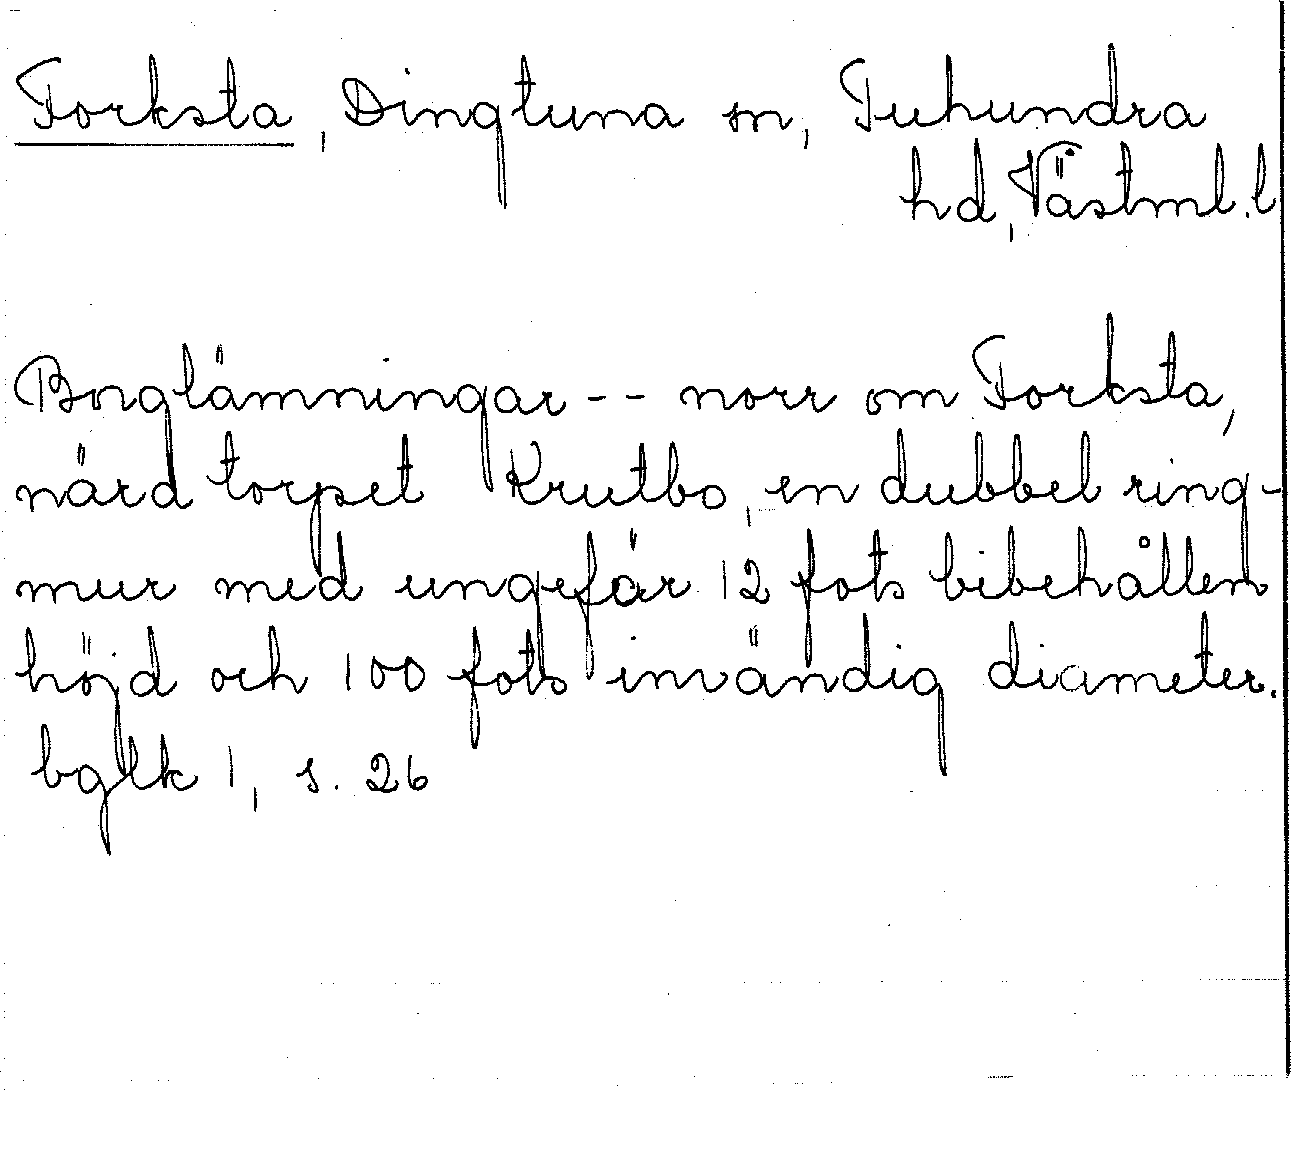 Forksta, Dingtuna sn, Tuhundra
hd, Västml. l
Borglämningar -- norr om Forksta,
närd torpet Krutbo, en dubbel ring-
mur med ungefär 12 fots bibehållen
höjd och 100 fots invändig diameter.
bglk 1, s. 26